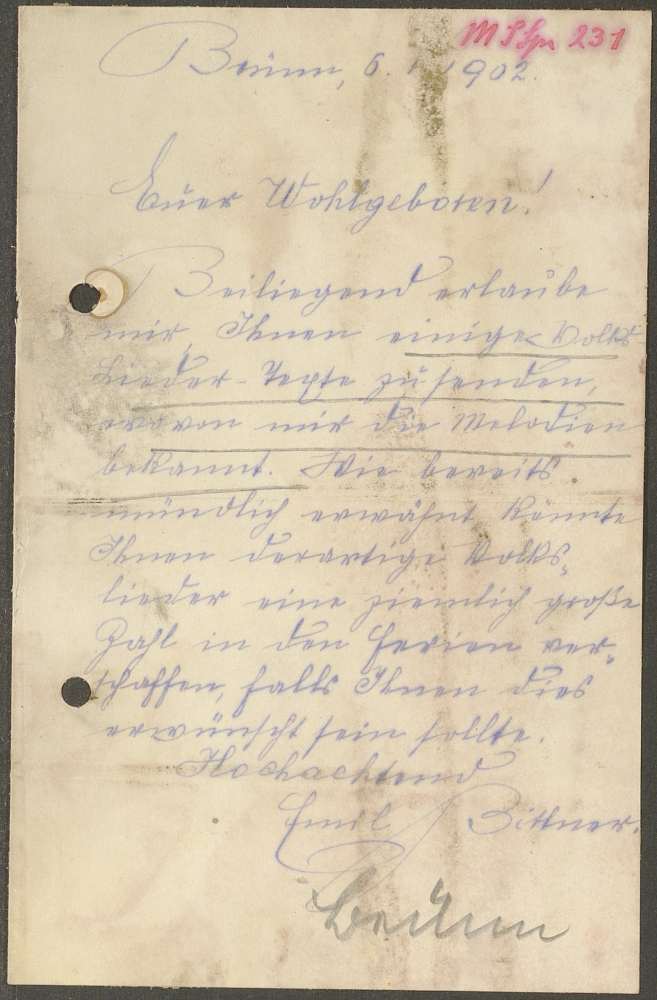 M S Spr 231
Brünn, 6. 1. 1902.
Euer Wohlgeboren!
Beiliegend erlaube
mir, Ihnen einige Volks
Lieder-Texte zu senden,
wovon mir die Melodien
bekannt. Wie bereits
mündlich erwähnt könnte
Ihnen derartige Volks-
lieder eine ziemlich große
Zahl in den Ferien ver-
schaffen, falls Ihnen dies
erwünscht sein sollte.
Hochachtend
Emil Bittner.
Brünn